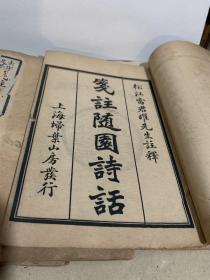 松江雷君曜先生註釋
箋註随園詩話
上海掃葉山房發行